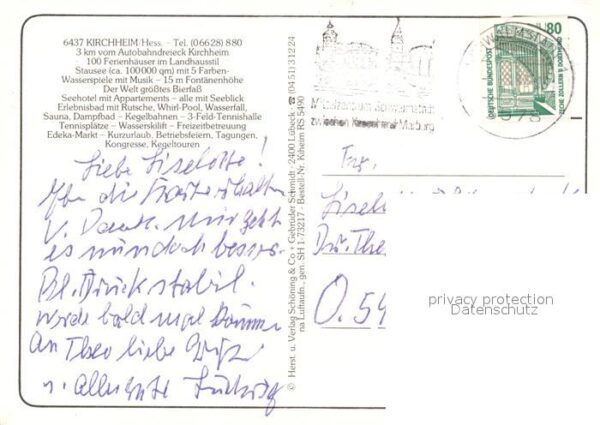 6437 KIRCHHEIM/Hess. - Tel. (06628) 880
3 km vom Autobahndreieck Kirchheim
100 Ferienhäuser im Landhausstil
Stausee (ca. 100000 qm) mit 5 Farben-
Wasserspiele mit Musik – 15 m Fontänenhöhe
Der Welt größtes Bierfaß
Seehotel mit Appartements – alle mit Seeblick
Erlebnisbad mit Rutsche, Whirl-Pool, Wasserfall,
Sauna, Dampfbad - Kegelbahnen – 3-Feld-Tennishalle
Tennisplätze – Wasserskilift – Freizeitbetreuung
Edeka-Markt – Kurzurlaub, Betriebsfeiern, Tagungen,
Kongresse, Kegeltouren
Liebe Liselotte!
die Karte erhalten
V. Dank. mir geht
es nun doch besser.
Bl. Druck stabil.
Werde bald mal kommen
An Theo liebe
u. alles Gute
© Herst. u. Verlag Schöning & Co + Gebrüder Schmidt · 2400 Lübeck ☎ (0451) 31224
na Luftaufn., gen. SH 1-73217 - Bestell-Nr. Kiheim RS 5490
zwischen Kassel und Marburg
80
DEUTSCHE BUNDESPOST
Liesel
The
O. 54
privacy protection
Datenschutz